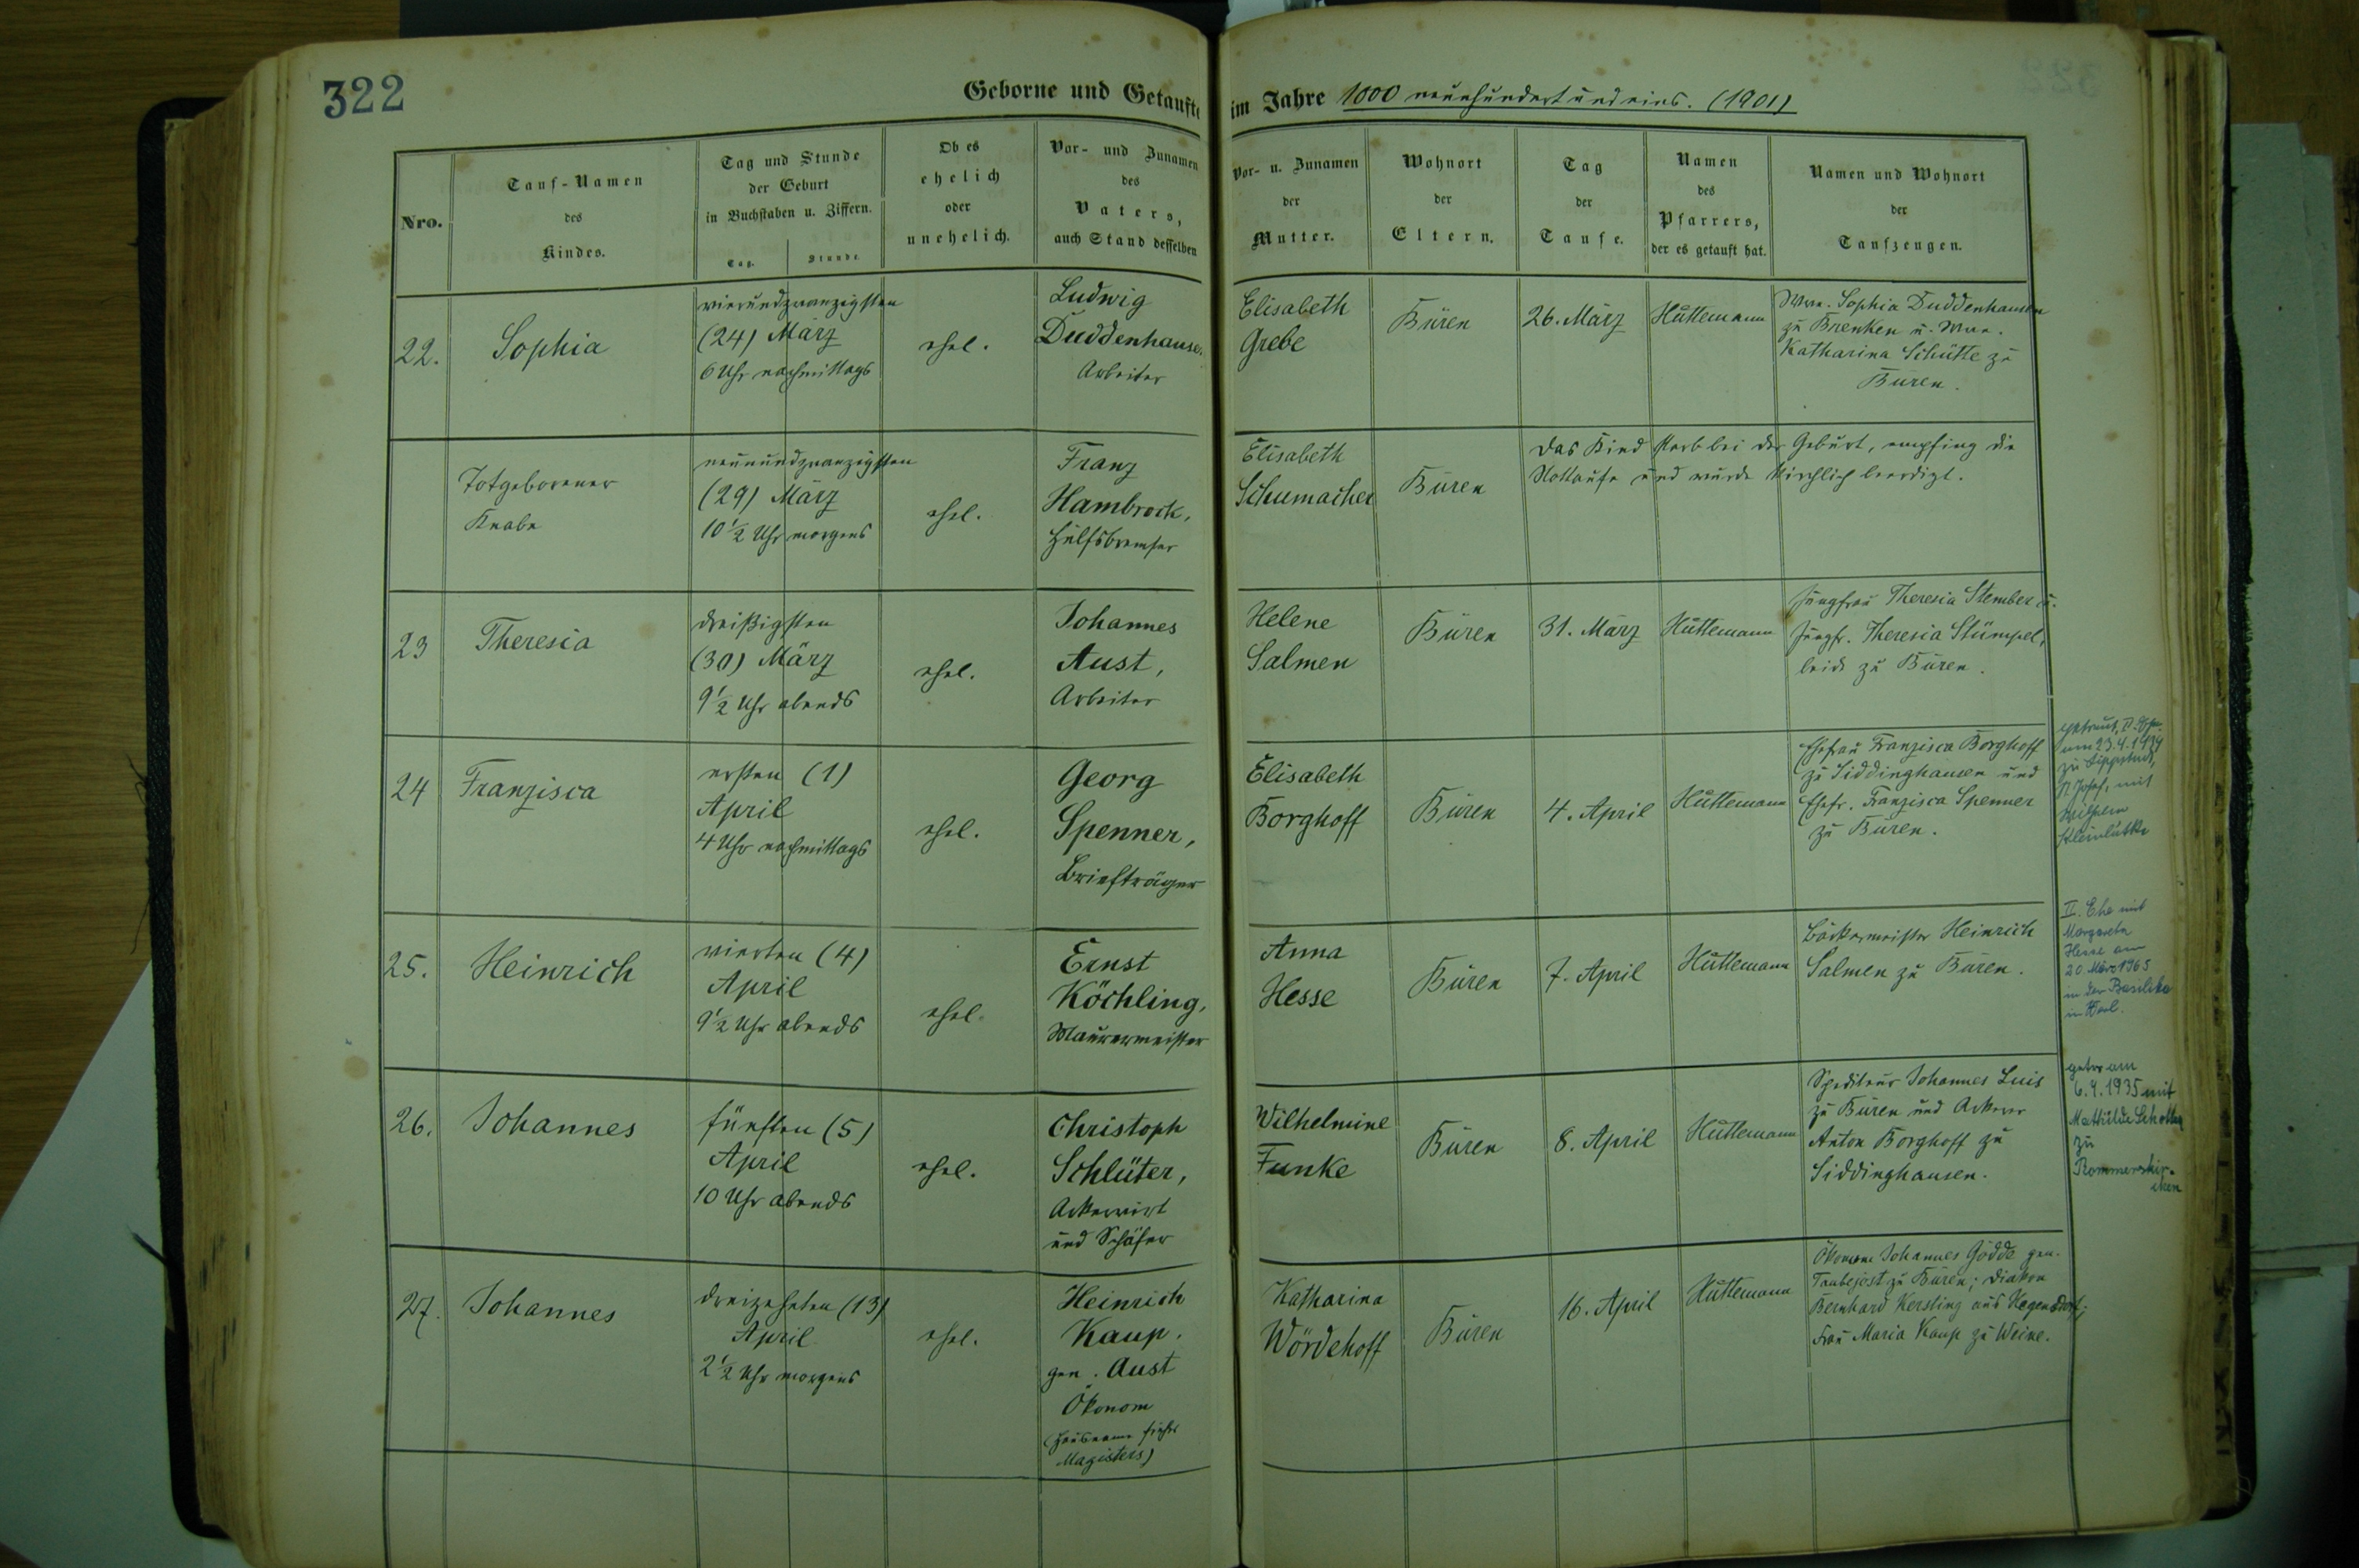 322
Geborne und Getaufte im Jahre 1000 neunhundert und eins. (1901)
Nro.
Tauf-Namen
des
Kindes.
Tag und Stunde
der Geburt
in Buchstaben u. Ziffern.
Tag.
Stunde
Ob es
ehelich
oder
unehelich.
Vor- und Zunamen
des
Vaters,
auch Stand desselben
Vor- u. Zunamen
der
Mutter.
Wohnort
der
Eltern.
Tag
der
Taufe.
Namen
des
Pfarrers,
der es getauft hat.
Namen und Wohnort
der
Taufzeugen.
22.
Sophia
vierundzwanzigsten
(24) März
6 Uhr nachmittags
ehel.
Ludwig
Duddenhausen
Arbeiter
Elisabeth
Grebe
Büren
26. März
Hüttemann
Wwe. Sophia Duddenhausen
zu Brenken u. Wwe.
Katharina Schütte zu
Büren.
Totgeborener
Knabe
neunundzwanzigsten
(29) März
10 1/2 Uhr morgens
ehel.
Franz
Hambrock,
Hülfsbremser
Elisabeth
Schumacher
Büren
Das Kind starb bei der Geburt, empfing die
Nottaufe und wurde kirchlich beerdigt.
23
Theresia
dreißigsten
(30) März
9 1/2 Uhr abends
ehel.
Johannes
Aust,
Arbeiter
Helene
Salmen
Büren
31. März
Hüttemann
Jungfrau Theresia Stember u.
Jungfr. Theresia Stümpel,
beide zu Büren.
24
Franzisca
ersten (1)
April
4 Uhr nachmittags
ehel.
Georg
Spenner,
Briefträger
Elisabeth
Borghoff
Büren
4. April
Hüttemann
Ehefrau Franzisca Borghoff
zu Siddinghausen und
Ehefr. Franzisca Spenner
zu Büren.
getraut,
am 23.4.1934
zu Lippstadt,
St. Josef, mit
Wilhelm
25.
Heinrich
vierten (4)
April
9 1/2 Uhr abends
ehel.
Ernst
Köchling,
Maurermeister
Anna
Hesse
Büren
7. April
Hüttemann
Bäckermeister Heinrich
Salmen zu Büren.
II. Ehe mit
Margareta
Hesse am
20. März 1965
in der Basilika
in Werl.
26.
Johannes
fünften (5)
April
10 Uhr abends
ehel.
Christoph
Schlüter,
Ackerwirt
und Schäfer
Wilhelmine
Funke
Büren
8. April
Hüttemann
Spediteur Johannes Luis
zu Büren und Ackerer
Anton Borghoff zu
Siddinghausen.
getr. am
6.9.1935 mit
Mathilde
zu
Rommerskir-
chen
27.
Johannes
dreizehnten (13)
April
2 1/2 Uhr morgens
ehel.
Heinrich
Kaup.
gen. Aust
Ökonom
(Hausname früher
Magisters)
Katharina
Wördehoff
Büren
16. April
Hüttemann
Ökonom Johannes Gödde gen.
Taubejost zu Büren; Diakon
Bernhard Kersting aus Hegensdorf;
Frau Maria Kaup zu Weine.